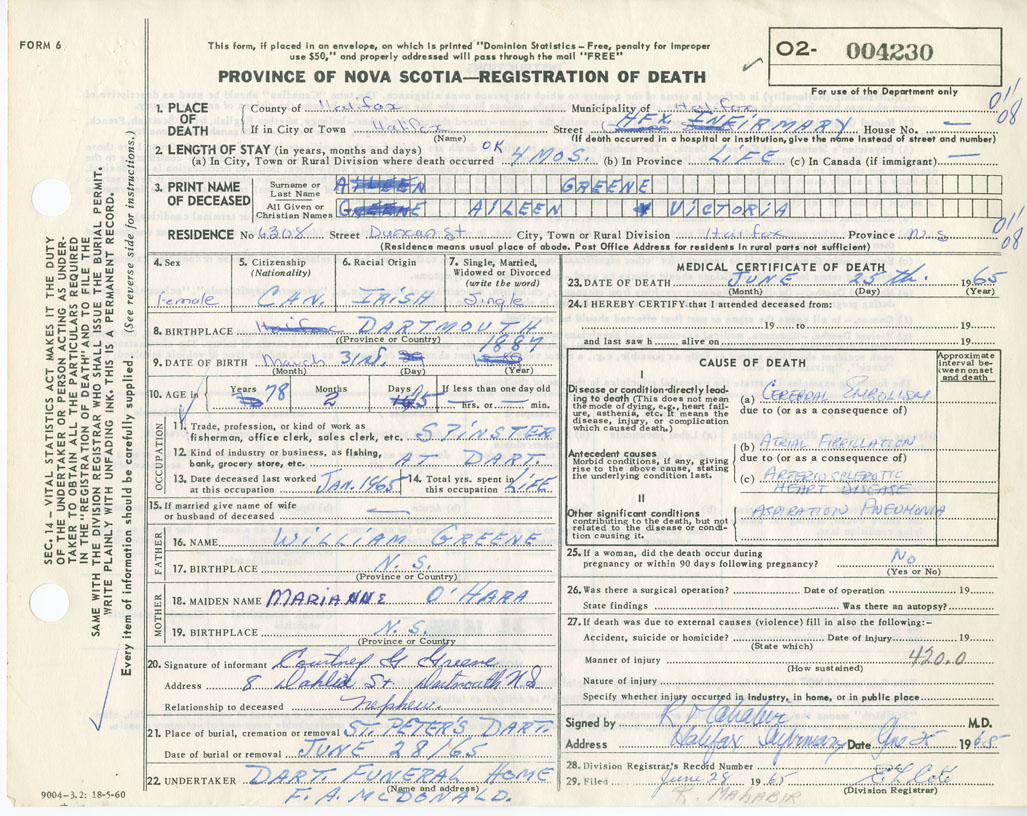 FORM 6
This form, if placed in an envelope, on which is printed "Dominion Statistics – Free, penalty for improper
use $50," and properly addressed will pass through the mail "FREE"
PROVINCE OF NOVA SCOTIA—REGISTRATION OF DEATH
02- 004230
For use of the Department only
SEC. 14 – VITAL STATISTICS ACT MAKES IT THE DUTY
OF THE UNDERTAKER OR PERSON ACTING AS UNDER-
TAKER TO OBTAIN ALL THE PARTICULARS REQUIRED
IN THE "REGISTRATION OF DEATH" AND FILE THE
SAME WITH THE DIVISION REGISTRAR WHO SHALL ISSUE THE BURIAL PERMIT.
WRITE PLAINLY WITH UNFADING INK. THIS IS A PERMANENT RECORD.
Every item of information should be carefully supplied. (See reverse side for instructions.)
1. PLACE OF DEATH
County of Halifax Municipality of Halifax
If in City or Town Halifax Street HFX INFIRMARY House No. —
(Name) (If death occurred in a hospital or institution, give the name instead of street and number)
2. LENGTH OF STAY (in years, months and days) OK
(a) In City, Town or Rural Division where death occurred 4 MOS. (b) In Province LIFE (c) In Canada (if immigrant) —
3. PRINT NAME OF DECEASED
Surname or Last Name GREENE
All Given or Christian Names AILEEN VICTORIA
RESIDENCE No 6308 Street Duncan St City, Town or Rural Division Halifax Province N.S
(Residence means usual place of abode. Post Office Address for residents in rural parts not sufficient)
011
08
011
08
4. Sex 5. Citizenship (Nationality) 6. Racial Origin 7. Single, Married, Widowed or Divorced (write the word)
Female CAN. IRISH Single
8. BIRTHPLACE DARTMOUTH
(Province or Country)
9. DATE OF BIRTH March 31st, 1887
(Month) (Day) (Year)
10. AGE in Years 78 Months 2 Days 25 If less than one day old — hrs. or — min.
OCCUPATION
11. Trade, profession, or kind of work as
fisherman, office clerk, sales clerk, etc. SPINSTER
12. Kind of industry or business, as fishing,
bank, grocery store, etc. AT DART.
13. Date deceased last worked at this occupation JAN. 1965 14. Total yrs. spent in this occupation LIFE
15. If married give name of wife
or husband of deceased —
FATHER
16. NAME WILLIAM GREENE
17. BIRTHPLACE N.S.
(Province or Country)
MOTHER
18. MAIDEN NAME MARIANNE O'HARA
19. BIRTHPLACE N.S.
(Province or Country)
20. Signature of informant Courtney G Greene
Address 8 Dahlia St Dartmouth N S
Relationship to deceased nephew.
21. Place of burial, cremation or removal ST. PETER'S DART.
Date of burial or removal JUNE 28/65
22. UNDERTAKER DART. FUNERAL HOME
(Name and address)
F. A. McDONALD.
9004–3.2: 18-5-60
MEDICAL CERTIFICATE OF DEATH
23. DATE OF DEATH JUNE 25th. 1965
(Month) (Day) (Year)
24. I HEREBY CERTIFY that I attended deceased from:
19 to 19
and last saw h alive on 19
CAUSE OF DEATH
Approximate interval between onset and death
I
Disease or condition directly leading to death (This does not mean
the mode of dying, e.g., heart failure, asthenia, etc. It means the
disease, injury, or complication which caused death.)
(a) CEREBRAL EMBOLISM
due to (or as a consequence of)
Antecedent causes
Morbid conditions, if any, giving
rise to the above cause, stating
the underlying condition last.
(b) ATRIAL FIBRILLATION
due to (or as a consequence of)
(c) ARTERIOSCLEROTIC
HEART DISEASE
II
Other significant conditions
contributing to the death, but not
related to the disease or condition causing it.
ASPIRATION PNEUMONIA
25. If a woman, did the death occur during
pregnancy or within 90 days following pregnancy? No
(Yes or No)
26. Was there a surgical operation? Date of operation 19
State findings Was there an autopsy?
27. If death was due to external causes (violence) fill in also the following:–
Accident, suicide or homicide? Date of injury 19
(State which)
Manner of injury 420.0
(How sustained)
Nature of injury
Specify whether injury occurred in industry, in home, or in public place
Signed by R Mahabir M.D.
Address Halifax Infirmary Date June 25 1965
28. Division Registrar's Record Number
29. Filed June 28 1965
(Division Registrar)
R. MAHABIR